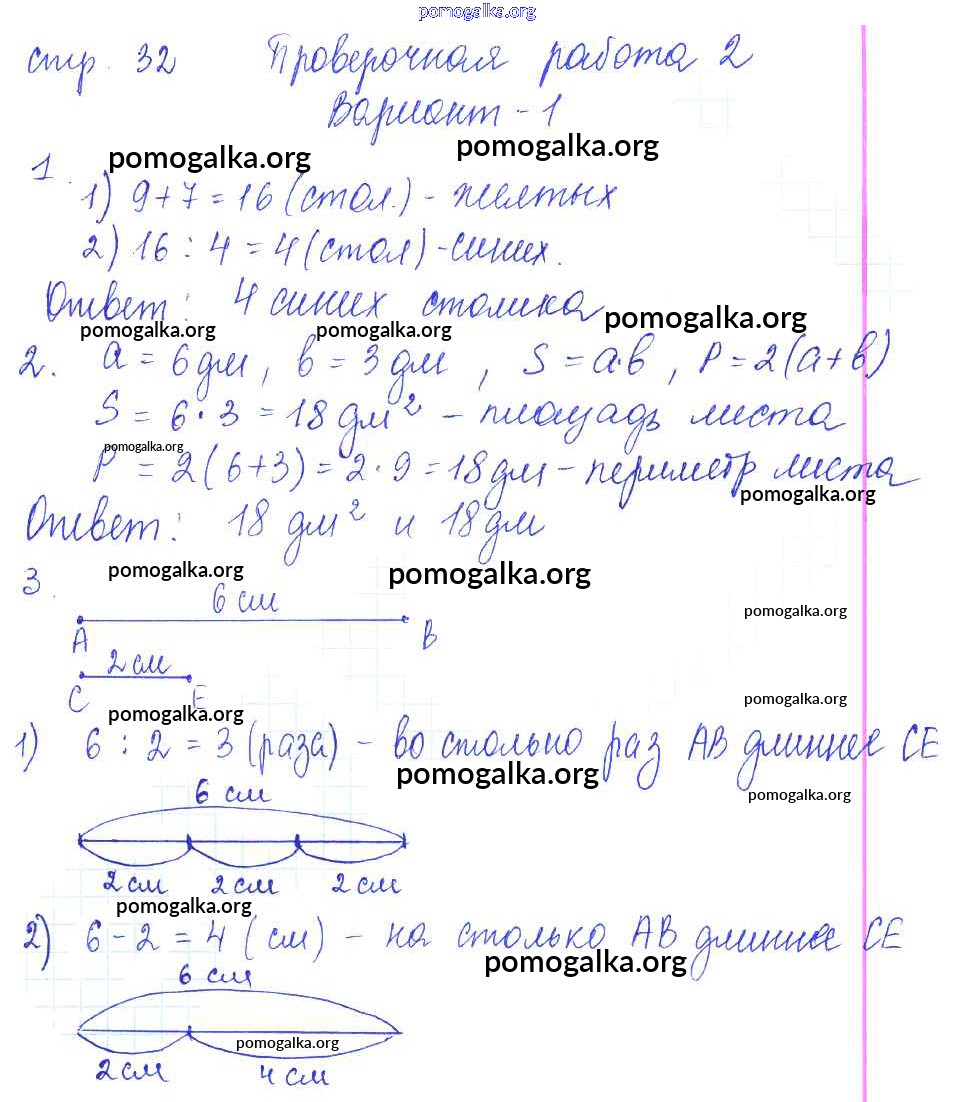 pomogalka.org
стр. 32 Проверочная работа 2
Вариант - 1
pomogalka.org pomogalka.org
1.
1) 9 + 7 = 16 (стол.) - желтых
2) 16 : 4 = 4 (стол) - синих.
Ответ: 4 синих столика
pomogalka.org pomogalka.org pomogalka.org
2. a = 6 дм, в = 3 дм, S = а·в, P = 2(а+в)
S = 6 · 3 = 18 дм² - площадь листа
pomogalka.org
P = 2 (6+3) = 2 · 9 = 18 дм - периметр листа
pomogalka.org
Ответ: 18 дм² и 18 дм
pomogalka.org pomogalka.org
3.
6 см
pomogalka.org
A B
2 см
C E
pomogalka.org
pomogalka.org
1) 6 : 2 = 3 (раза) - во столько раз AB длиннее CE
pomogalka.org
6 см
pomogalka.org
2 см 2 см 2 см
pomogalka.org
2) 6 - 2 = 4 (см) - на столько AB длиннее CE
pomogalka.org
6 см
pomogalka.org
2 см 4 см